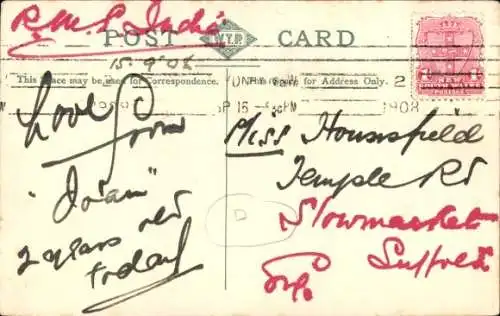 R.M.S. India
POST W.T.P. CARD
15.9.08
This Place may be used for Correspondence.
The Space for Address Only.
SP 15
1908
2
NEW
SOUTH WALES
POSTAGE
Love from
"Joan"
2 years old
today
Miss Hounsfield
Temple Rd
Stowmarket
Suffolk
D